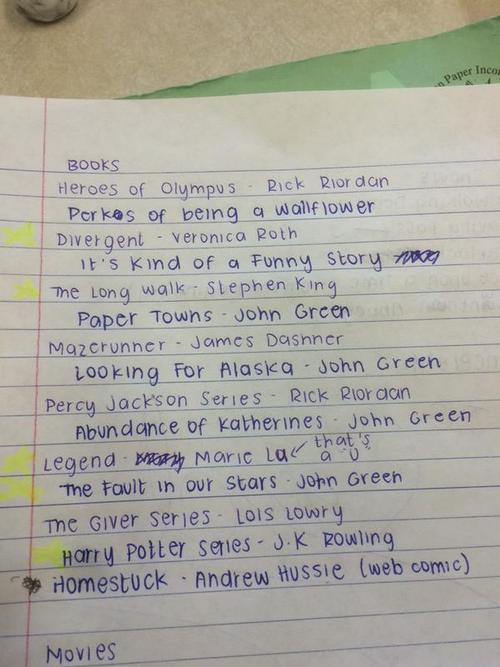 n Paper Incor
BOOKS
Heroes of Olympus - Rick Riordan
Perks of being a wallflower
Divergent - Veronica Roth
It's Kind of a Funny Story
The Long Walk - Stephen King
Paper Towns - John Green
Mazerunner - James Dashner
Looking For Alaska - John Green
Percy Jackson Series - Rick Riordan
Abundance of Katherines - John Green
that's
Legend - Marie Lu a U
The Fault in our Stars - John Green
The Giver Series - Lois Lowry
Harry Potter Series - J.K Rowling
Homestuck - Andrew Hussie (web comic)
Movies